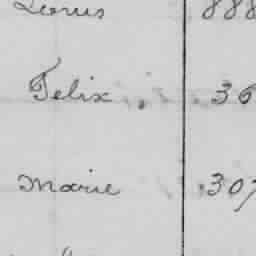 Louis 888
Felix . 36
Marie 307